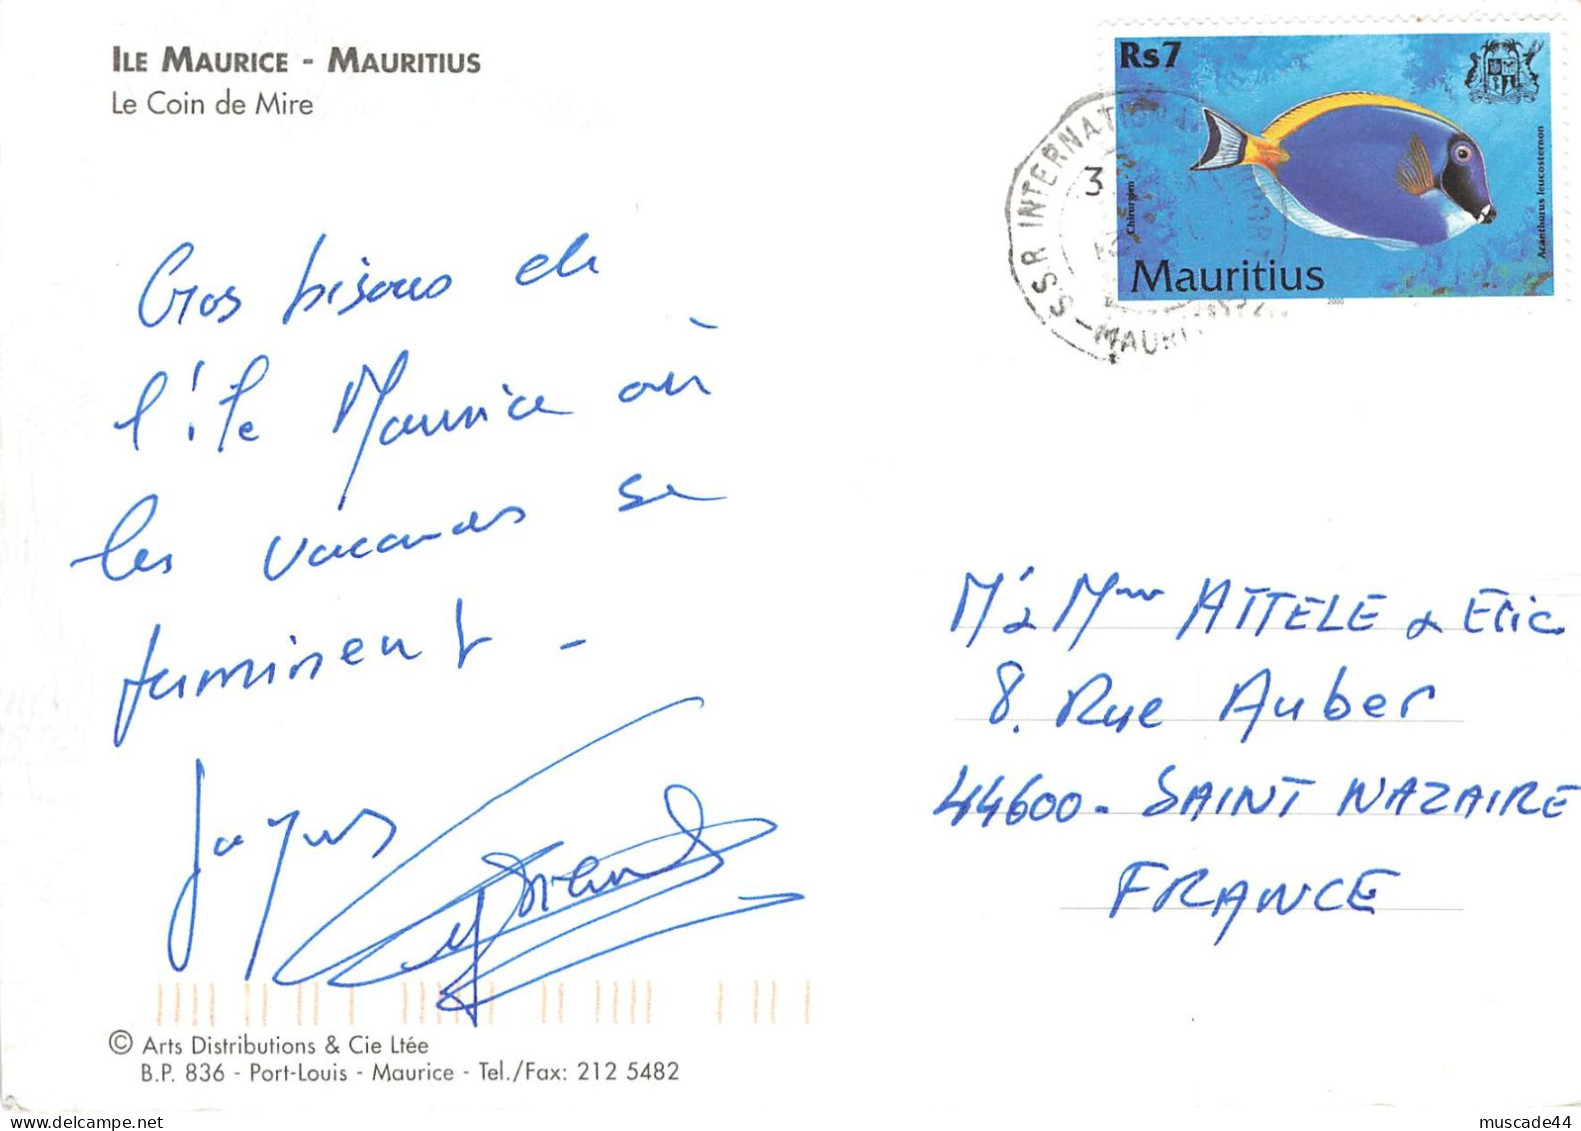 ILE MAURICE - MAURITIUS
Le Coin de Mire
Rs7
Chirurgien
Acanthurus leucosternon
Mauritius
2000
SSR INTERNATION
3
MAURI
Gros bisous de
l'île Maurice où
les vacances se
terminent -
Jacques
Mr & Mme ATTELE & Eric
8. Rue Auber
44600 - SAINT NAZAIRE
FRANCE
© Arts Distributions & Cie Ltée
B.P. 836 - Port-Louis - Maurice - Tel./Fax: 212 5482
muscade44